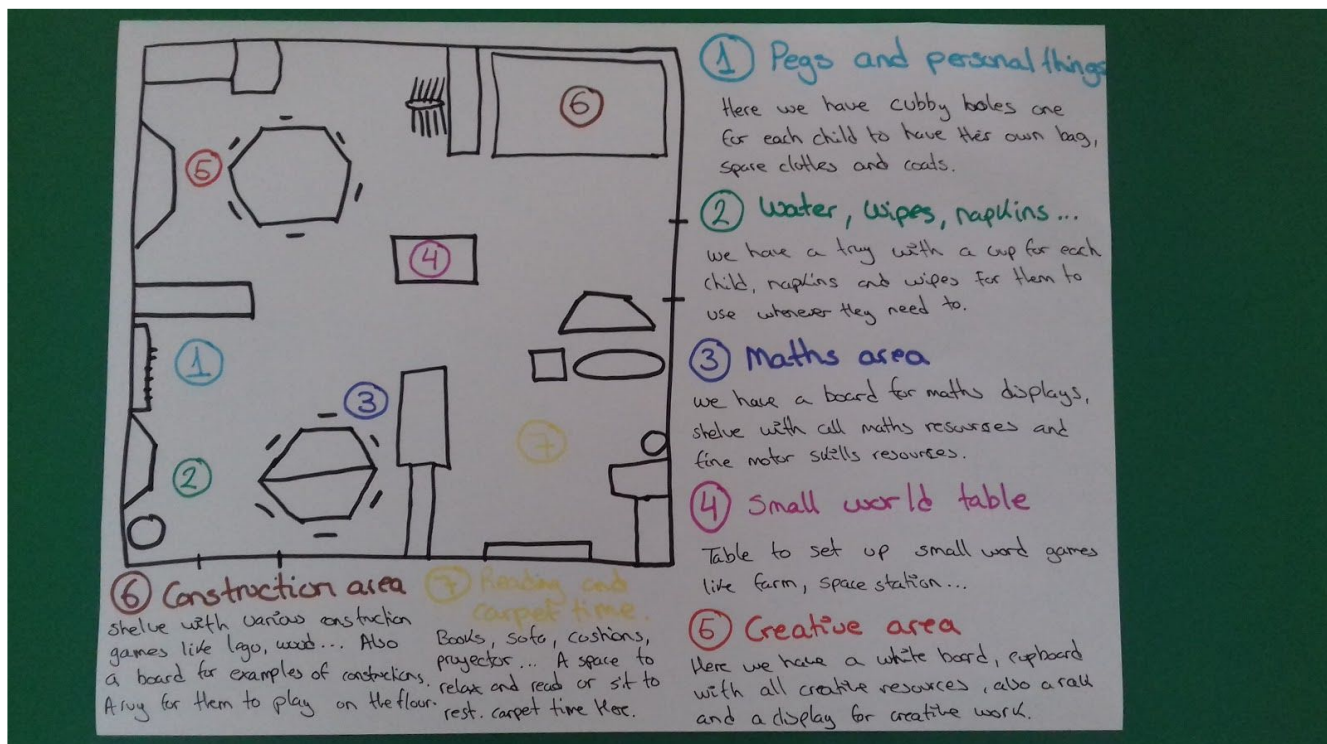 6
5
4
1
3
2
7
1 Pegs and personal things
Here we have cubby holes one
for each child to have their own bag,
spare clothes and coats.
2 Water, wipes, napkins...
we have a tray with a cup for each
child, napkins and wipes for them to
use whenever they need to.
3 Maths area
we have a board for maths displays,
shelve with all maths resources and
fine motor skills resources.
4 Small world table
Table to set up small word games
like farm, space station...
5 Creative area
Here we have a white board, cupboard
with all creative resources, also a
and a display for creative work.
6 Construction area
shelve with various construction
games like lego, wood... Also
a board for examples of constructions.
A rug for them to play on the flour.
7 Reading and
carpet time.
Books, sofa, cushions,
proyector... A space to
relax and read or sit to
rest. carpet time Here.